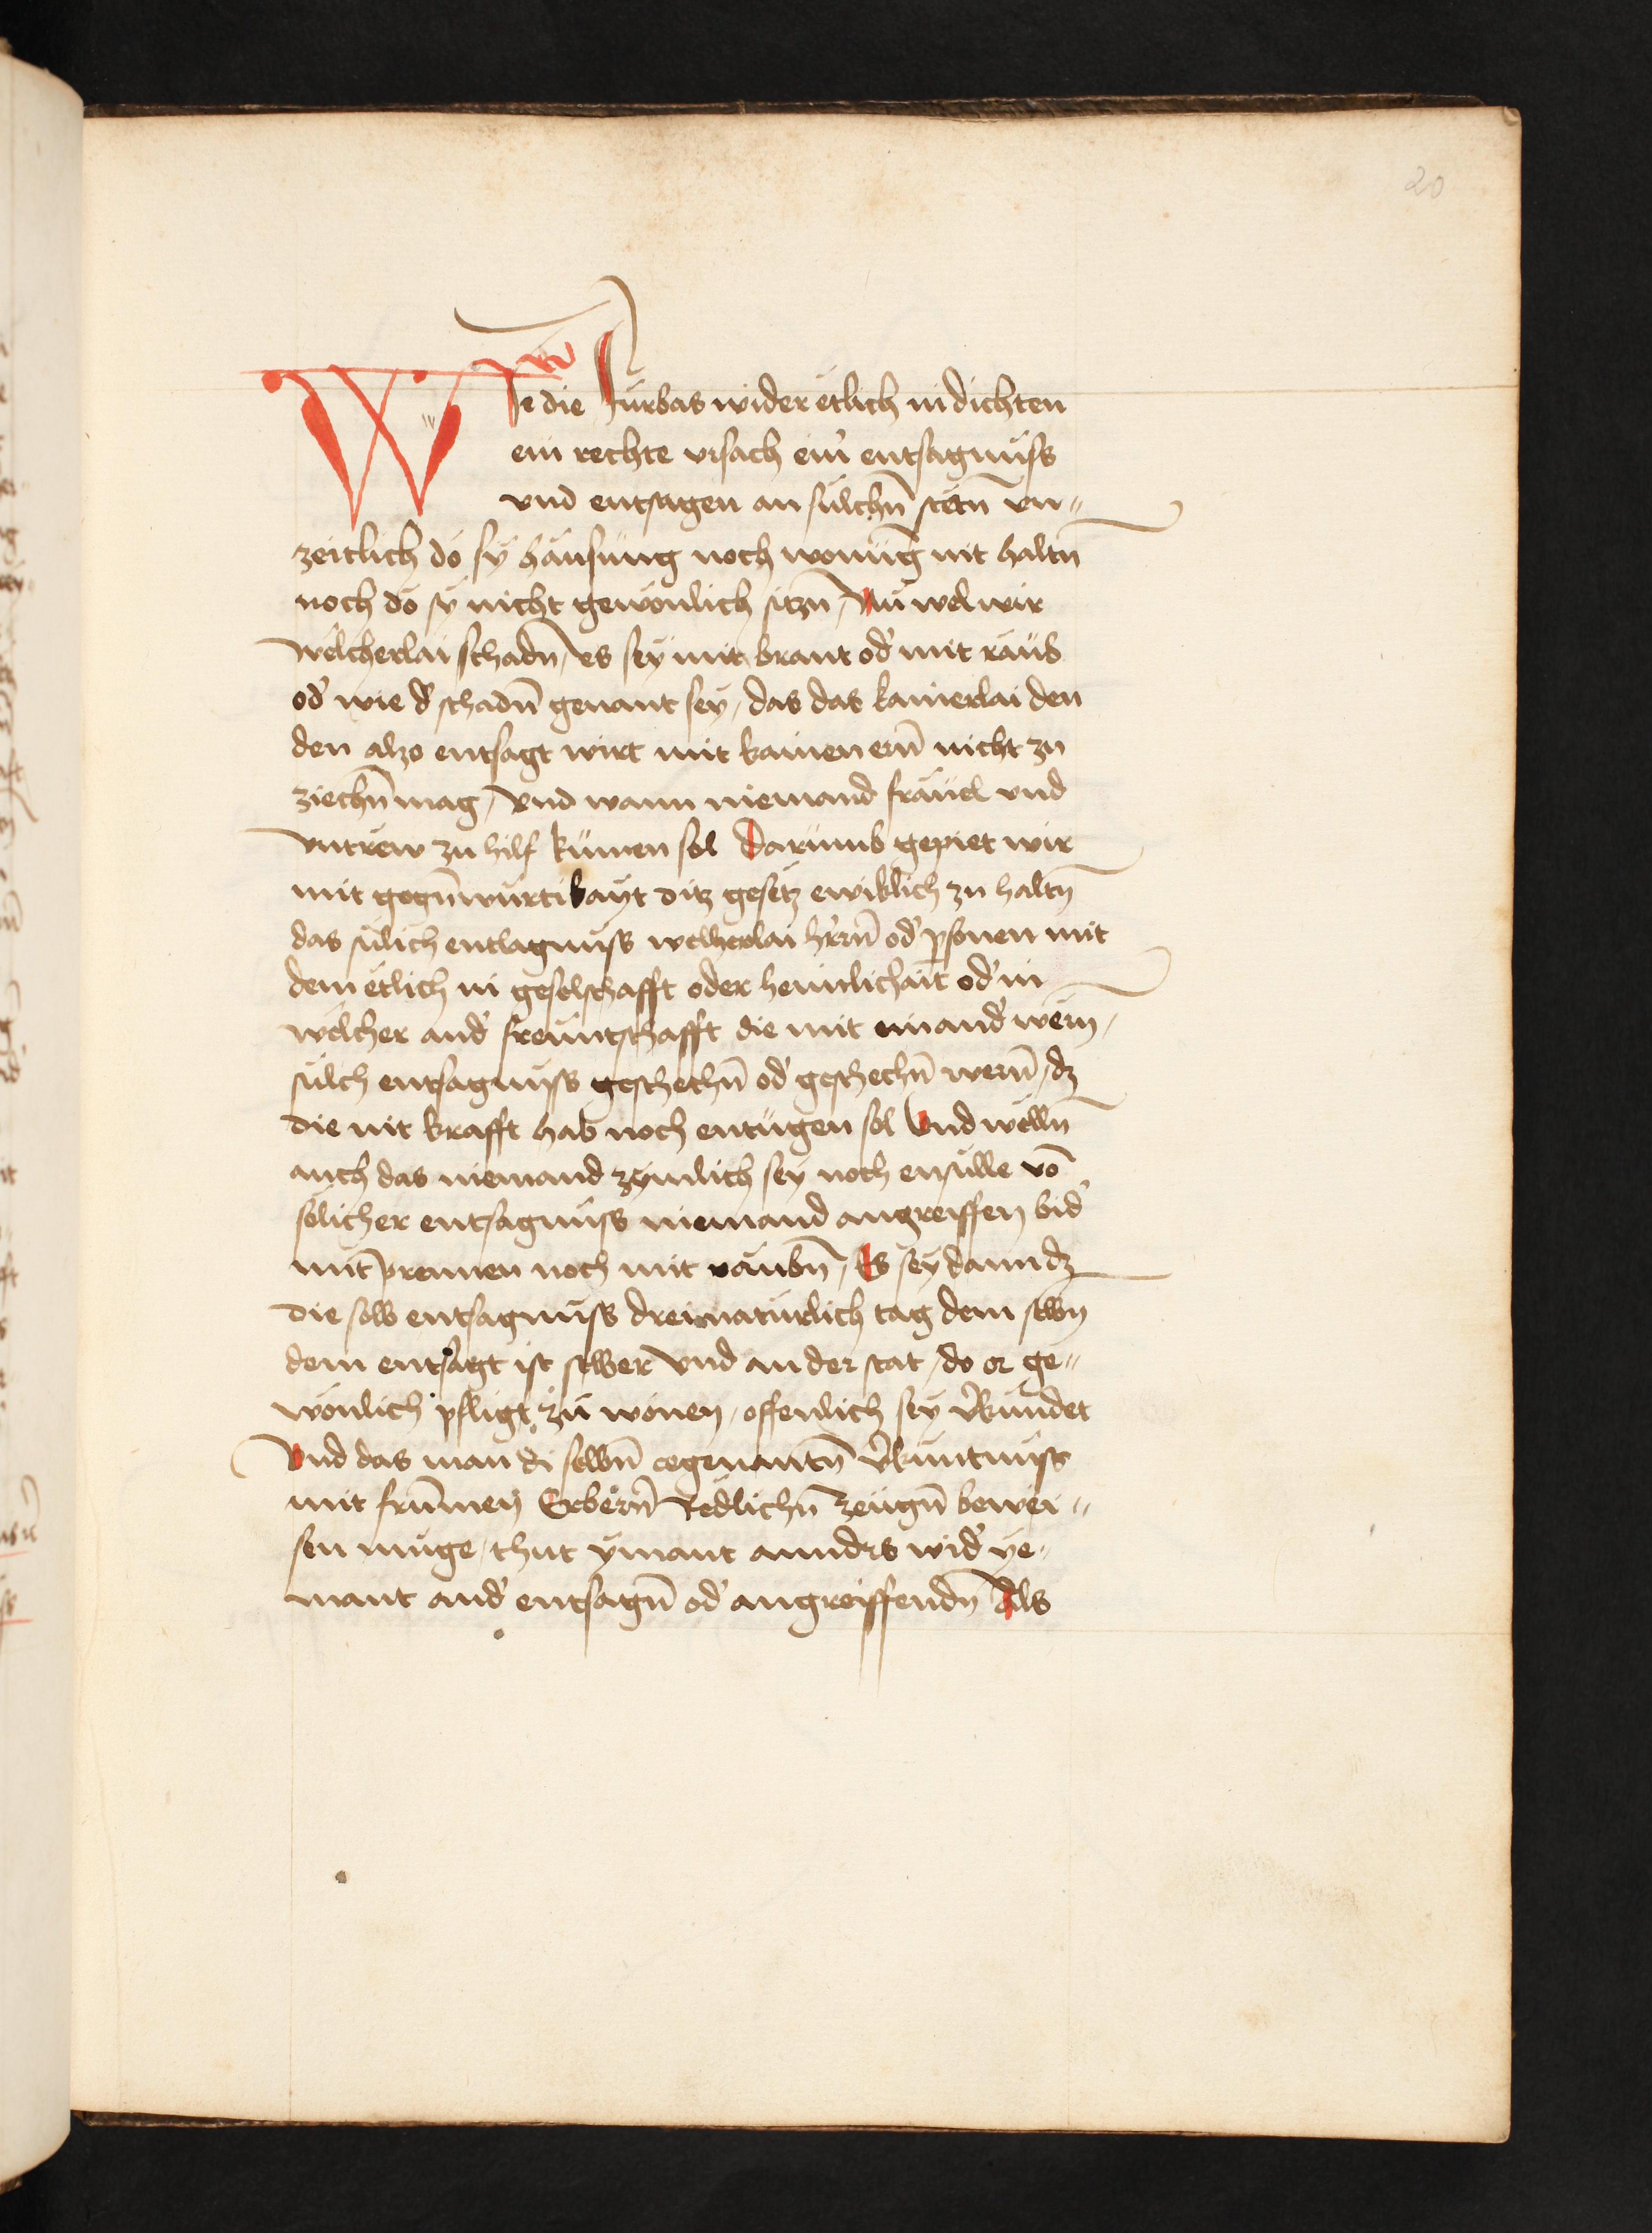 20
Wie die furbas wider etlich in dichten
ein rechte vrsach ein̄ entsagnüss
vnd entsagen an sülchn̄ stetn̄ vn„
zeitlich do sÿ hausüng noch wonūg nit haltn̄
noch do sÿ nicht gewonlich sitzn̄ / Nu wel wir
welcherlai schadn̄ / es sey mit brant od' mit raub
od' wie d' schadn̄ genant sey / das das kainerlai den
den alzo entsagt wirt mit kainen ern̄ nicht zu
ziechn̄ mag / Vnd wann niemand fräuel vnd
vntrew zu hilf kümen sol Darümb gepiet wir
mit gegn̄würtikayt ditz gesetz ewiklich zu haltn̄
das sülich entsagnüss welherlai h'rrn̄ od' psonen mit
dem etlich in geselschafft oder heimlichait od' in
welcher and' freuntschafft die mit einand' wern /
sülch entsagnüss geschechn̄ od' geschechn̄ wern̄ / dz
die nit krafft hab noch entügen sol Vnd welln̄
auch das niemand zÿmlich sey noch ensülle vō
sölicher entsagnüss niemand angreiffen bid'
mit prennen noch mit raubn̄ / Es sey dann dz
die selb entsagnüss drei natürlich tag dem selbn̄
dem entsagt ist selber vnd an der stat / do er ge„
wönlich pfligt zu wonen / offenlich sey v'kündet
Vnd das man di selbn̄ egenantn̄ v'küntnüss
mit frūmen Erbern̄ Redlichn̄ zeügn̄ bewei„
sen müge / thut ÿmant anndrs wid' ye„
mant and' entsagn̄ od' angreiffendn̄ Als